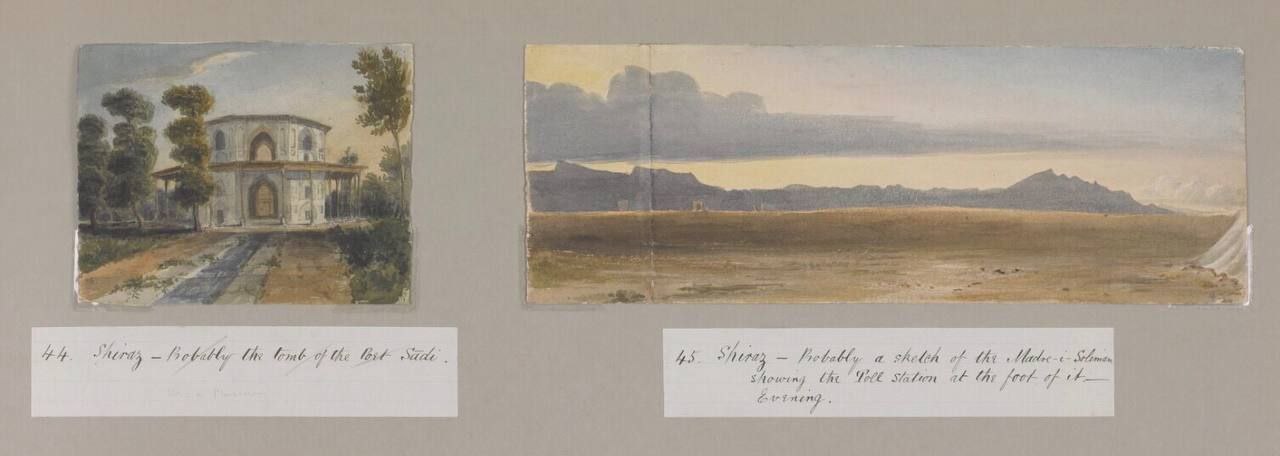 44. Shiraz – Probably the tomb of the Poet Sadi.
Museum
45. Shiraz – Probably a sketch of the Madre-i-Soleman
showing the Poll station at the foot of it –
Evening.